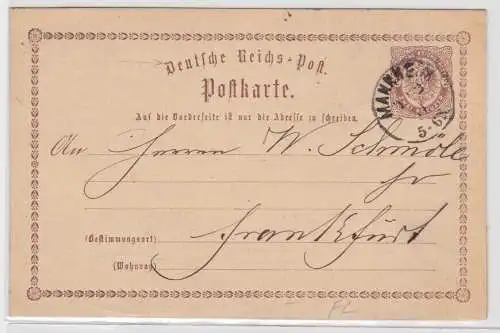 Deutsche Reichs-Post.
Postkarte.
Auf die Vorderseite ist nur die Adresse zu schreiben.
MANNHEIM
5-6
An Herren W. Schmöle
Frankfurt
(Bestimmungsort)
(Wohnung)